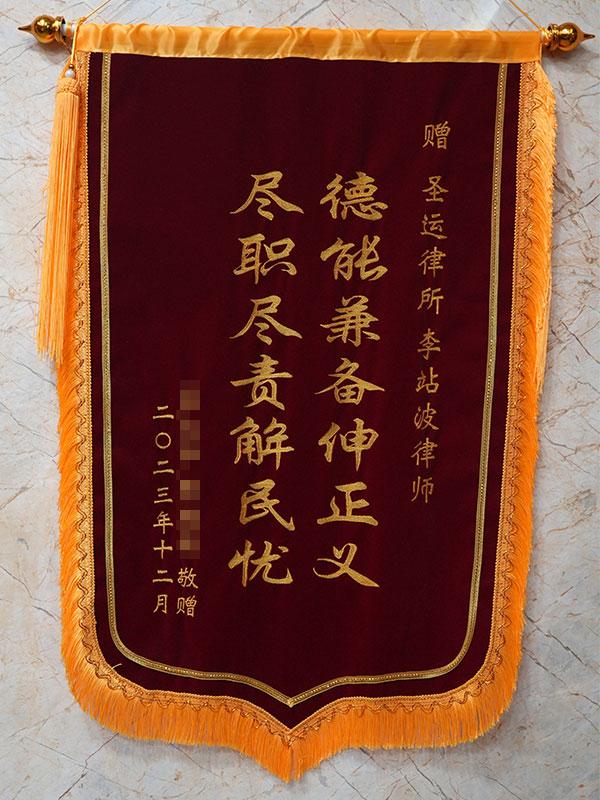 赠 圣运律所 李站波律师
德能兼备伸正义
尽职尽责解民忧
敬赠
二〇二三年十二月